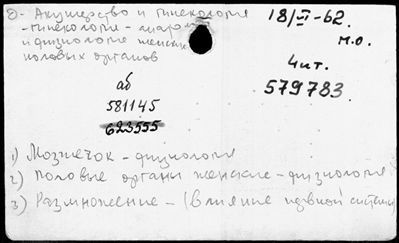 д- Акушерство и гинекология
-гинекология - анато
и физиология женских
половых органов
18/VI-62.
М.О.
4 чит.
579783.
аб
581145
623555
1) Мозжечок - физиология
2) Половые органы женские - физиология
3) Размножение - (влияние нервной системы)